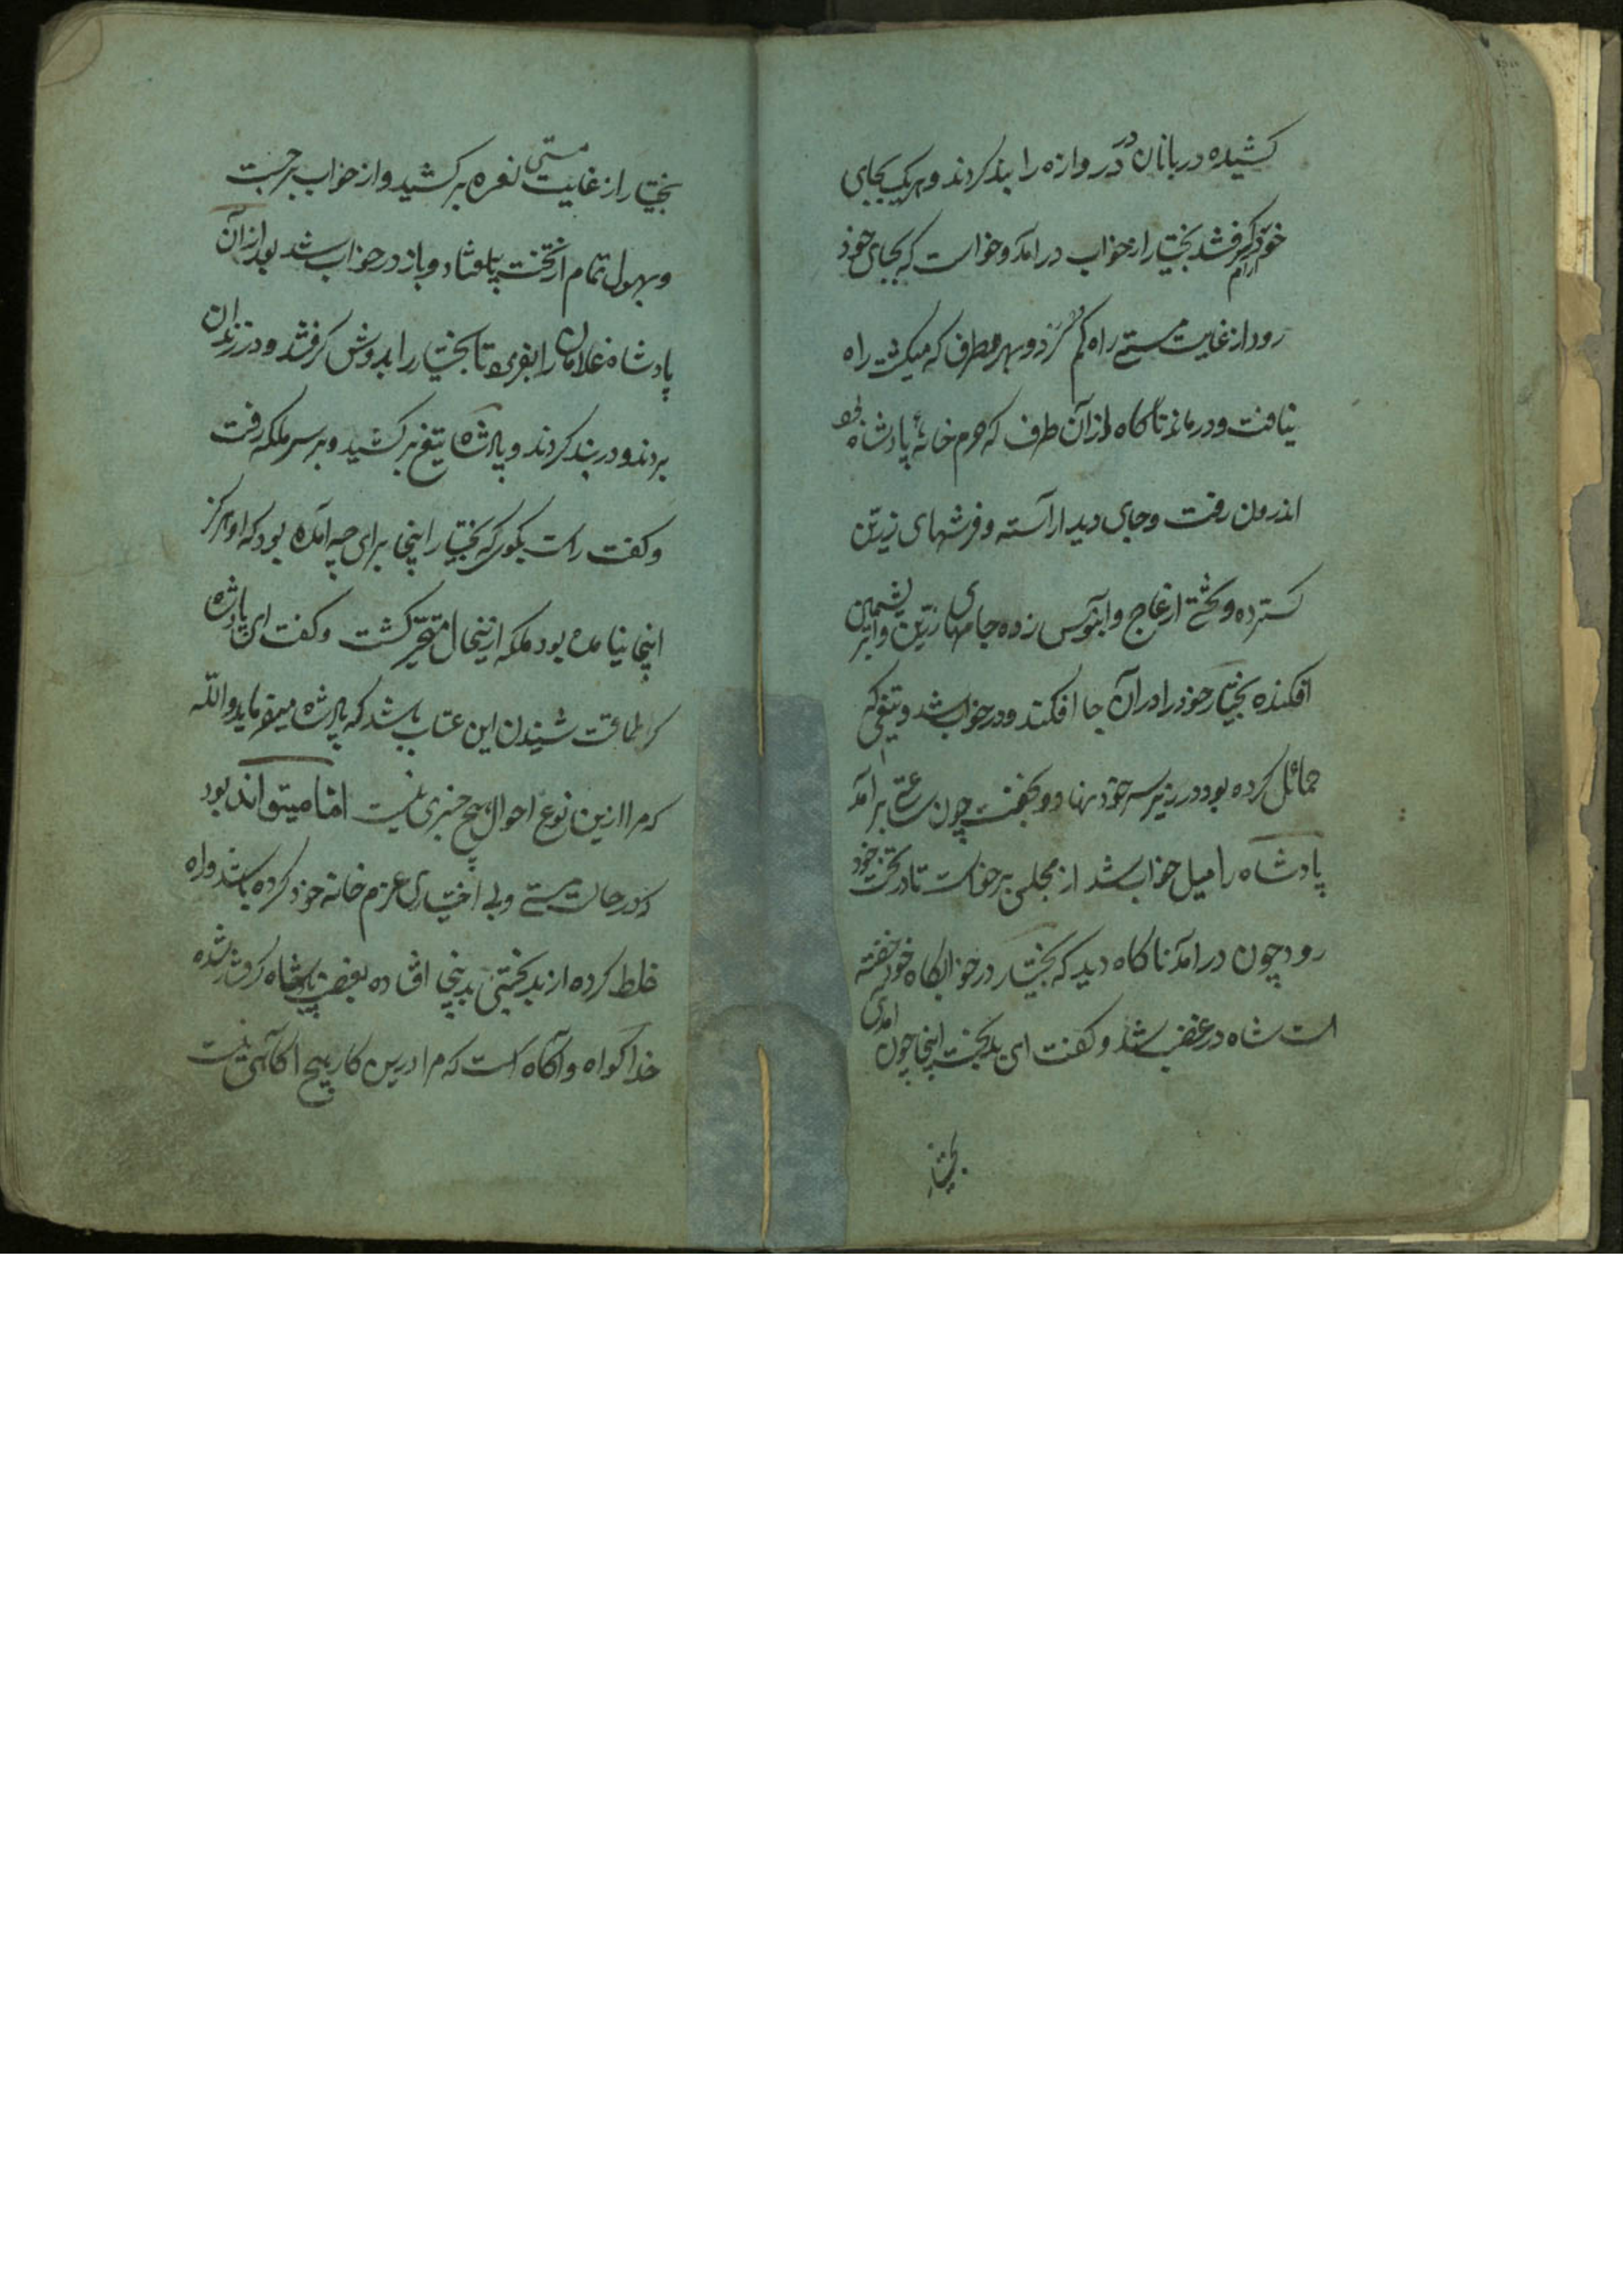 کشیده دربانان در دروازه را بند کردند و هریک بجای
خود آرام گرفتند بختیار از خواب درآمد و خواست که بجای خود
رود از غایت مستی راه گم کرد و بهر طرف که میگشت راه
نیافت و درماند ناگاه از آن طرف که حرم خانهٔ پادشاه بود
اندرون رفت و جای دید آراسته و فرشهای زرین
گسترده و تختی از عاج و آبنوس زده جامهای زرین و ابریشمین
افکنده بختیار خود را در آن جا افکند و در خواب شد و تیغی که
حمائل کرده بود در زیر سر خود نهاد و بخفت چون ساعتی برآمد
پادشاه را میل خواب شد از مجلس برخواست تا در تخت خود
رود چون درآمد ناگاه دید که بختیار در خوابگاه خود خفته
است شاه در غضب شد و گفت ای بدبخت اینجا چون آمدی
بختیار
بختیار از غایت مستی نعره برکشید و از خواب برجست
و بهول تمام از تخت بیفتاد و باز در خواب شد بعد از آن
پادشاه غلامان را بفرمود تا بختیار را بدوش گرفتند و در زندان
بردند و در بند کردند و پادشاه تیغ برکشید و بر سر ملکه رفت
و گفت راست بگو که بختیار اینجا برای چه آمده بود که او هرگز
اینجا نیامده بود ملکه ازینحال متحیر گشت و گفت ای پادشاه
کرا طاقت شنیدن این عتاب باشد که پادشاه میفرماید والله
که مرا ازین نوع احوال هیچ خبری نیست اما میتواند بود
که در حالت مستی و بی اختیاری عزم خانه خود کرده باشد و راه
غلط کرده از بدبختی بدینجا افتاده بغضب پادشاه گرفتار شده
خدا گواه و آگاه است که مرا درین کار هیچ آگاهی نیست